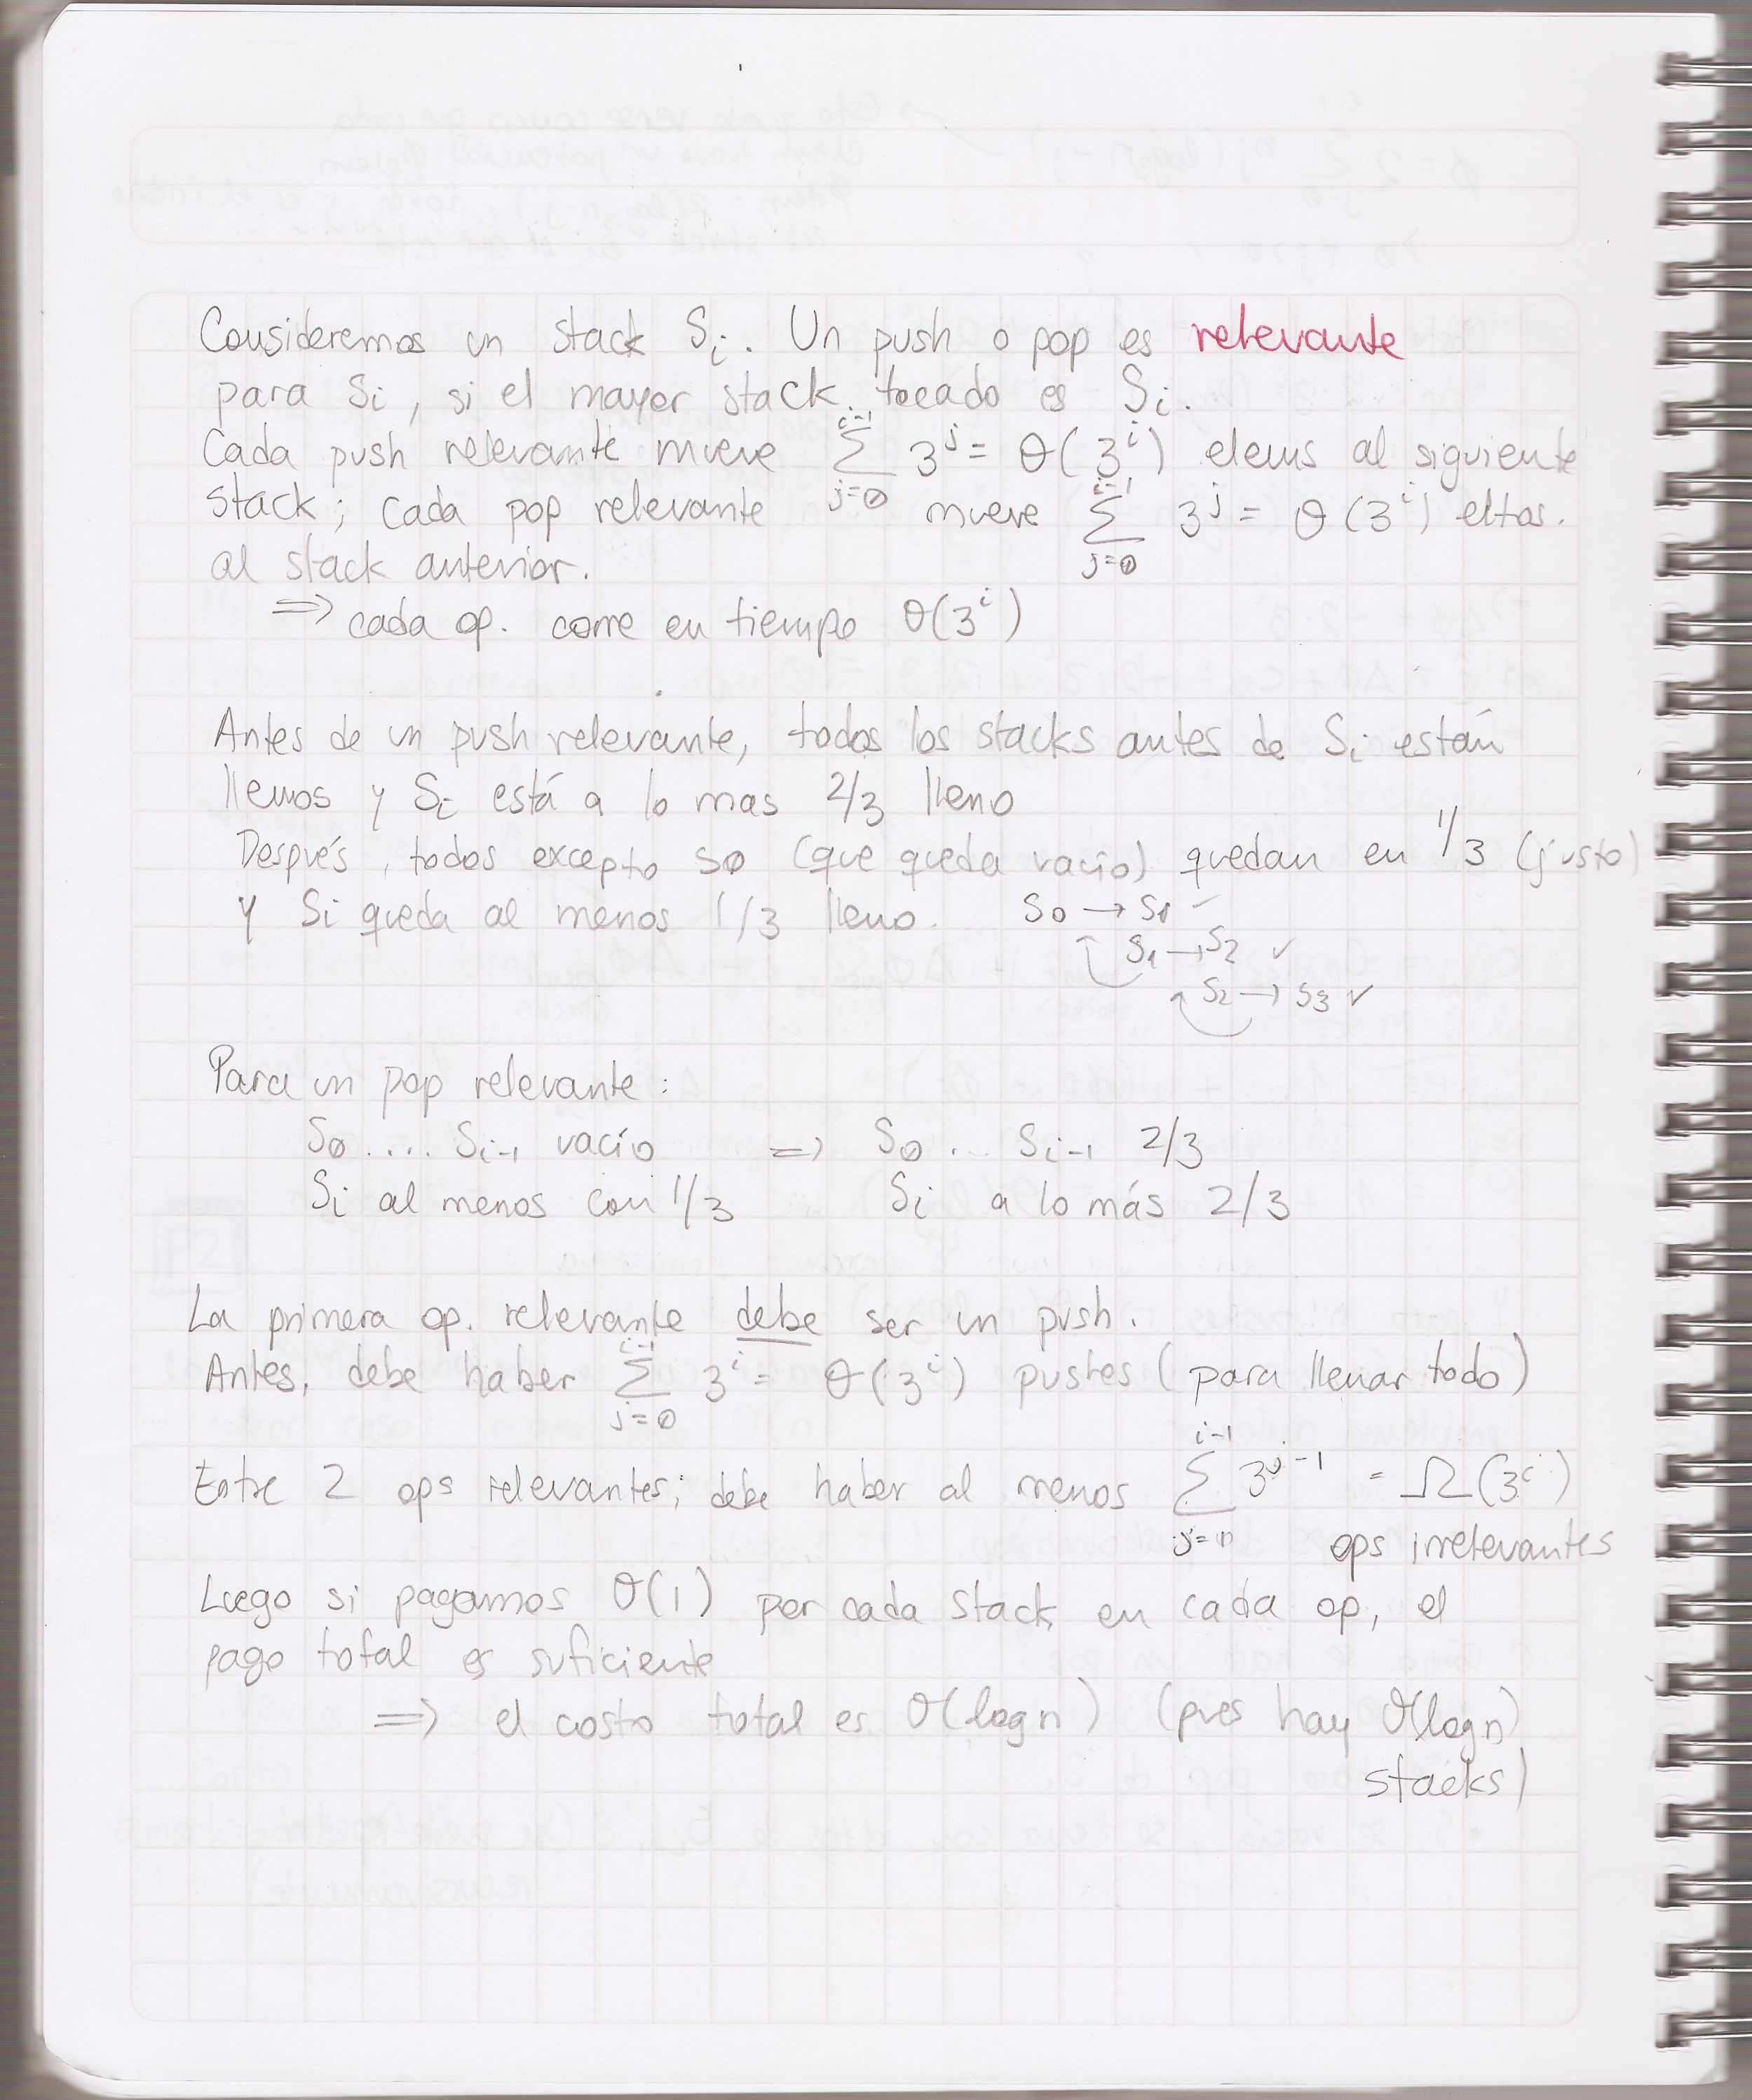 Consideremos un stack Si. Un push o pop es relevante
para Si, si el mayor stack tocado es Si.
Cada push relevante mueve \sum_{j=0}^{i-1} 3^j = θ(3^i) elems al siguiente
stack; cada pop relevante mueve \sum_{j=0}^{i-1} 3^j = θ(3^i) eltos.
al stack anterior.
⇒ cada op. corre en tiempo θ(3^i)
Antes de un push relevante, todos los stacks antes de Si están
llenos y Si está a lo mas 2/3 lleno
Después, todos excepto S0 (que queda vacío) quedan en 1/3 (justo)
y Si queda al menos 1/3 lleno. S0 → S1 -
S1 → S2 ✓
S2 → S3 ✓
Para un pop relevante:
S0 .... Si-1 vacío ⇒ S0 ... Si-1 2/3
Si al menos con 1/3 Si a lo más 2/3
La primera op. relevante debe ser un push.
Antes, debe haber \sum_{j=0}^{i-1} 3^i = θ(3^i) pushes (para llenar todo)
Entre 2 ops relevantes; debe haber al menos \sum_{j=0}^{i-1} 3^{j-1} = Ω(3^i)
ops irrelevantes
Luego si pagamos θ(1) por cada stack en cada op, el
pago total es suficiente
⇒ el costo total es θ(log n) (pues hay θ(log n)
stacks)